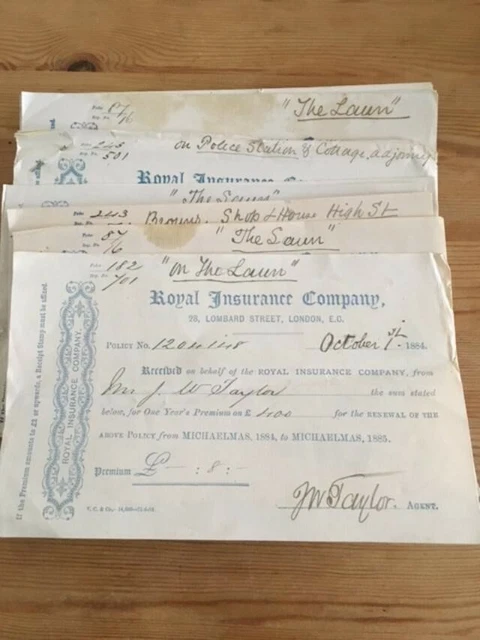 "The Lawn"
245
501
on Police Station & Cottage adjoining
Royal Insurance Co
"The Lawn"
243
Browns. Shop & House High St
57
16
"The Lawn"
182
701
"on The Lawn"
Royal Insurance Company,
28, LOMBARD STREET, LONDON, E.C.
POLICY No. October 1st 1884.
Received on behalf of the ROYAL INSURANCE COMPANY, from
Mr J. W Taylor the sum stated
below, for One Year's Premium on £400 for the RENEWAL OF THE
ABOVE POLICY from MICHAELMAS, 1884, to MICHAELMAS, 1885.
Premium £ - : 8 : -
JW Taylor. AGENT.
ROYAL INSURANCE COMPANY.
If the Premium amounts to £2 or upwards, a Receipt Stamp must be affixed.